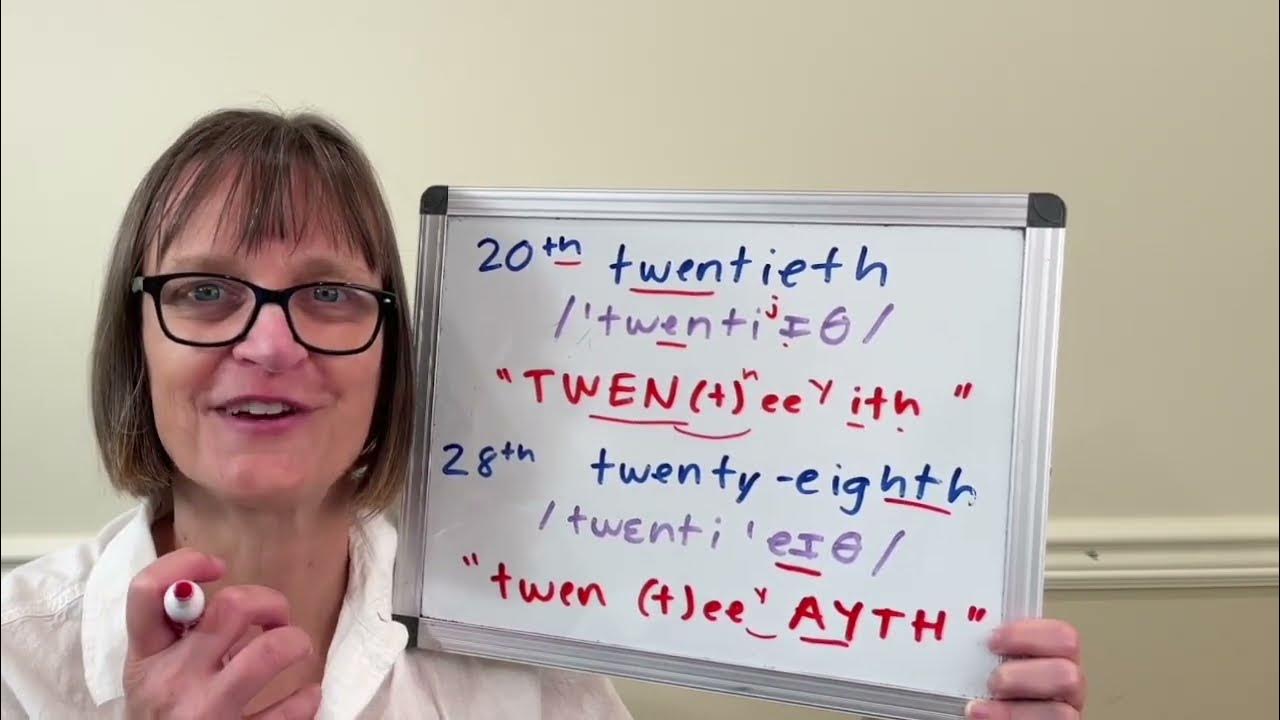 20th twentieth
/'twentiʲɪθ/
"TWEN(t)ⁿeeʸith"
28th twenty-eighth
/twɛnti 'eɪθ/
"twen (t)eeʸ AYTH"